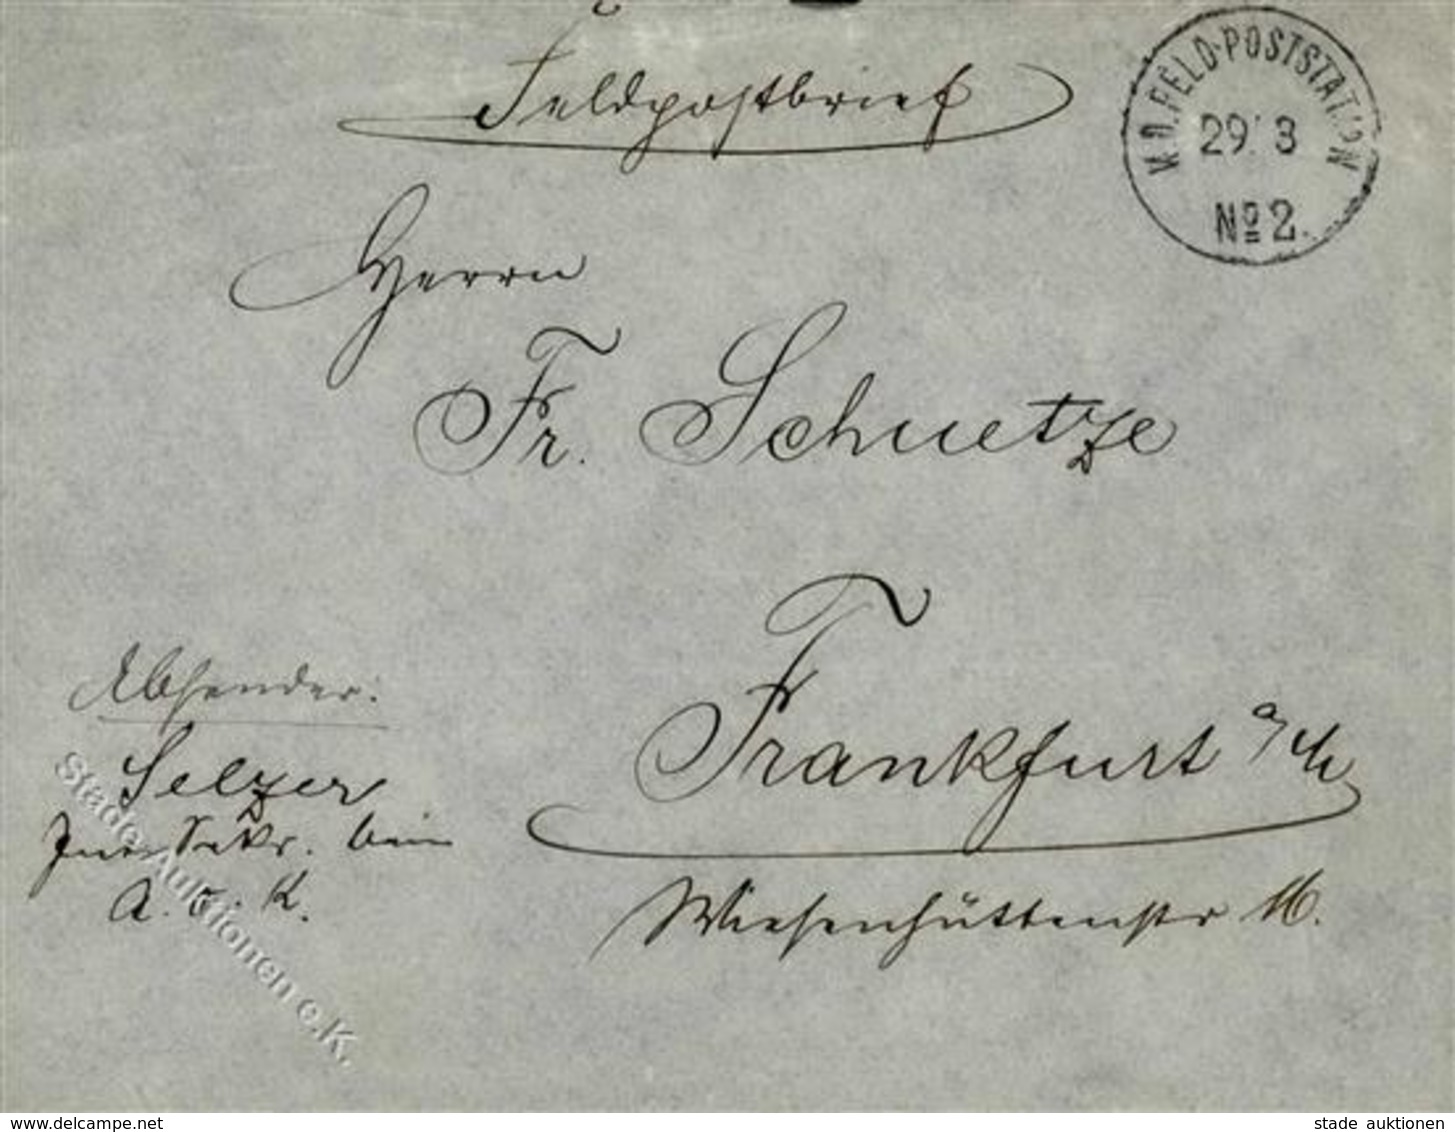 Feldpostbrief
K.D. FELD-POSTSTATION
29. 3
No 2.
Herrn
Fr. Schuetze
Frankfurt a/M
Wiesenhüttenstr 16.
Absender:
Selzer
Int. Sekr. beim
A. O. K.
Stade Auktionen e.K.
www.delcampe.net
stade auktionen